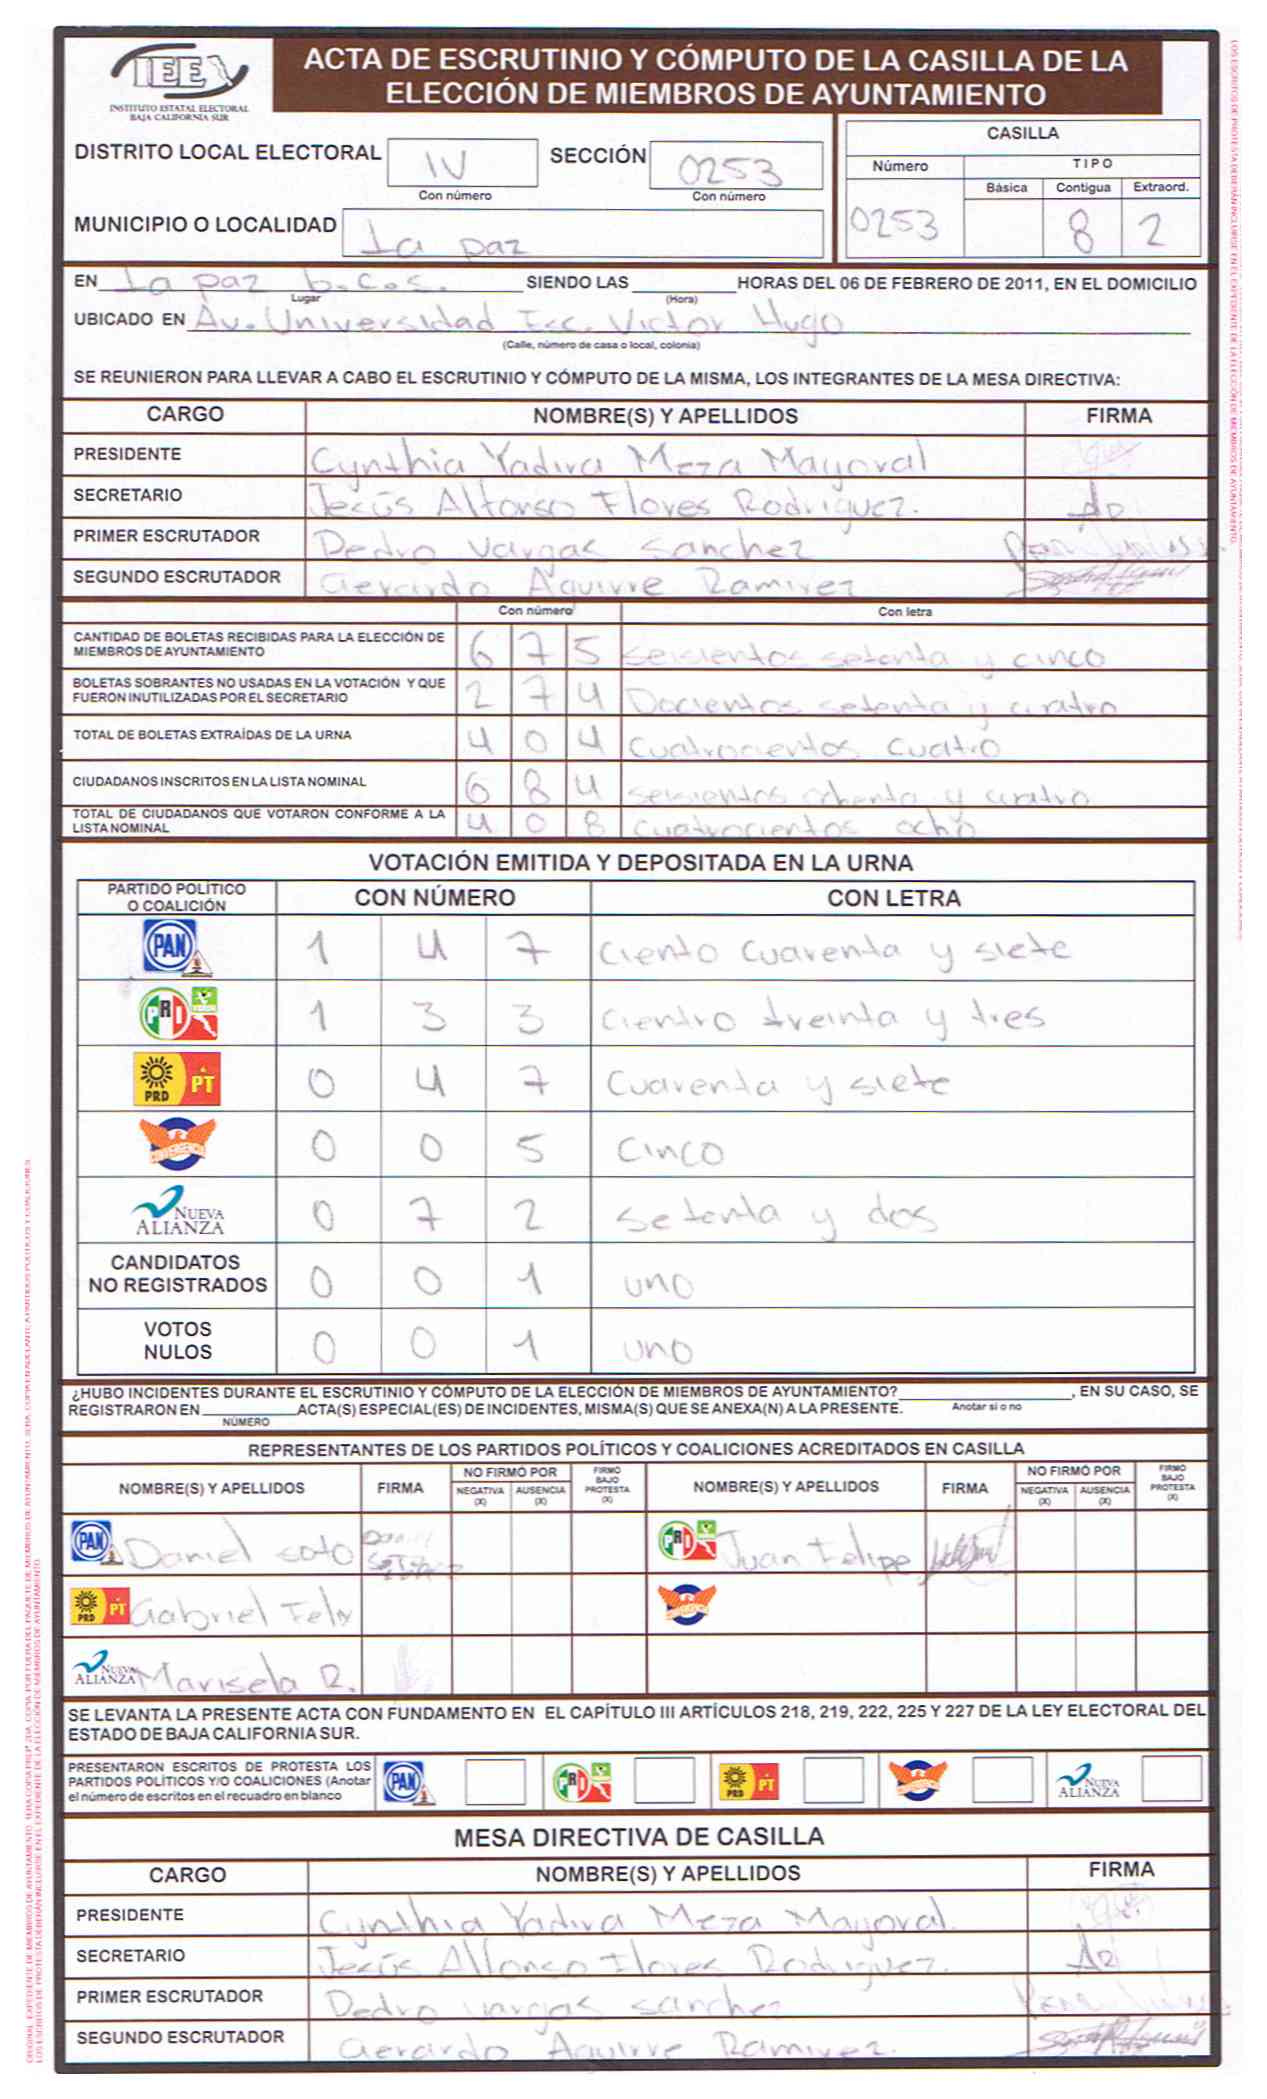 IEE
INSTITUTO ESTATAL ELECTORAL
BAJA CALIFORNIA SUR
ACTA DE ESCRUTINIO Y CÓMPUTO DE LA CASILLA DE LA
ELECCIÓN DE MIEMBROS DE AYUNTAMIENTO
DISTRITO LOCAL ELECTORAL IV SECCIÓN 0253
Con número Con número
MUNICIPIO O LOCALIDAD La paz
CASILLA
Número TIPO
Básica Contigua Extraord.
0253 8 2
EN La paz b.c.s. SIENDO LAS HORAS DEL 06 DE FEBRERO DE 2011, EN EL DOMICILIO
Lugar (Hora)
UBICADO EN Av. Universidad Esc. Victor Hugo
(Calle, número de casa o local, colonia)
SE REUNIERON PARA LLEVAR A CABO EL ESCRUTINIO Y CÓMPUTO DE LA MISMA, LOS INTEGRANTES DE LA MESA DIRECTIVA:
CARGO NOMBRE(S) Y APELLIDOS FIRMA
PRESIDENTE Cynthia Yadira Meza Mayoral
SECRETARIO Jesús Alfonso Flores Rodriguez.
PRIMER ESCRUTADOR Pedro Vargas Sanchez
SEGUNDO ESCRUTADOR Gerardo Aguirre Ramirez
Con número Con letra
CANTIDAD DE BOLETAS RECIBIDAS PARA LA ELECCIÓN DE
MIEMBROS DE AYUNTAMIENTO 6 7 5 seisientos setenta y cinco
BOLETAS SOBRANTES NO USADAS EN LA VOTACIÓN Y QUE
FUERON INUTILIZADAS POR EL SECRETARIO 2 7 4 Docientos setenta y cuatro
TOTAL DE BOLETAS EXTRAÍDAS DE LA URNA 4 0 4 Cuatrocientos cuatro
CIUDADANOS INSCRITOS EN LA LISTA NOMINAL 6 8 4 seisientos ochenta y cuatro
TOTAL DE CIUDADANOS QUE VOTARON CONFORME A LA
LISTA NOMINAL 4 0 8 cuatrocientos ocho
VOTACIÓN EMITIDA Y DEPOSITADA EN LA URNA
PARTIDO POLÍTICO
O COALICIÓN CON NÚMERO CON LETRA
PAN 1 4 7 ciento cuarenta y siete
PRI 1 3 3 cientro treinta y tres
PRD PT 0 4 7 Cuarenta y siete
CONVERGENCIA 0 0 5 cinco
NUEVA ALIANZA 0 7 2 setenta y dos
CANDIDATOS
NO REGISTRADOS 0 0 1 uno
VOTOS
NULOS 0 0 1 uno
¿HUBO INCIDENTES DURANTE EL ESCRUTINIO Y CÓMPUTO DE LA ELECCIÓN DE MIEMBROS DE AYUNTAMIENTO? , EN SU CASO, SE
REGISTRARON EN ACTA(S) ESPECIAL(ES) DE INCIDENTES, MISMA(S) QUE SE ANEXA(N) A LA PRESENTE. Anotar si o no
NÚMERO
REPRESENTANTES DE LOS PARTIDOS POLÍTICOS Y COALICIONES ACREDITADOS EN CASILLA
NOMBRE(S) Y APELLIDOS FIRMA NO FIRMÓ POR NEGATIVA (X) AUSENCIA (X) FIRMÓ BAJO PROTESTA (X) NOMBRE(S) Y APELLIDOS FIRMA NO FIRMÓ POR NEGATIVA (X) AUSENCIA (X) FIRMÓ BAJO PROTESTA (X)
PAN Daniel soto PRI Juan Felipe
PRD PT Gabriel Felix CONVERGENCIA
NUEVA ALIANZA Marisela R.
SE LEVANTA LA PRESENTE ACTA CON FUNDAMENTO EN EL CAPÍTULO III ARTÍCULOS 218, 219, 222, 225 Y 227 DE LA LEY ELECTORAL DEL
ESTADO DE BAJA CALIFORNIA SUR.
PRESENTARON ESCRITOS DE PROTESTA LOS
PARTIDOS POLÍTICOS Y/O COALICIONES (Anotar
el número de escritos en el recuadro en blanco
PAN PRI PRD PT CONVERGENCIA NUEVA ALIANZA
MESA DIRECTIVA DE CASILLA
CARGO NOMBRE(S) Y APELLIDOS FIRMA
PRESIDENTE Cynthia Yadira Meza Mayoral.
SECRETARIO Jesús Alfonso Flores Rodriguez.
PRIMER ESCRUTADOR Pedro Vargas Sanchez
SEGUNDO ESCRUTADOR Gerardo Aguirre Ramirez.